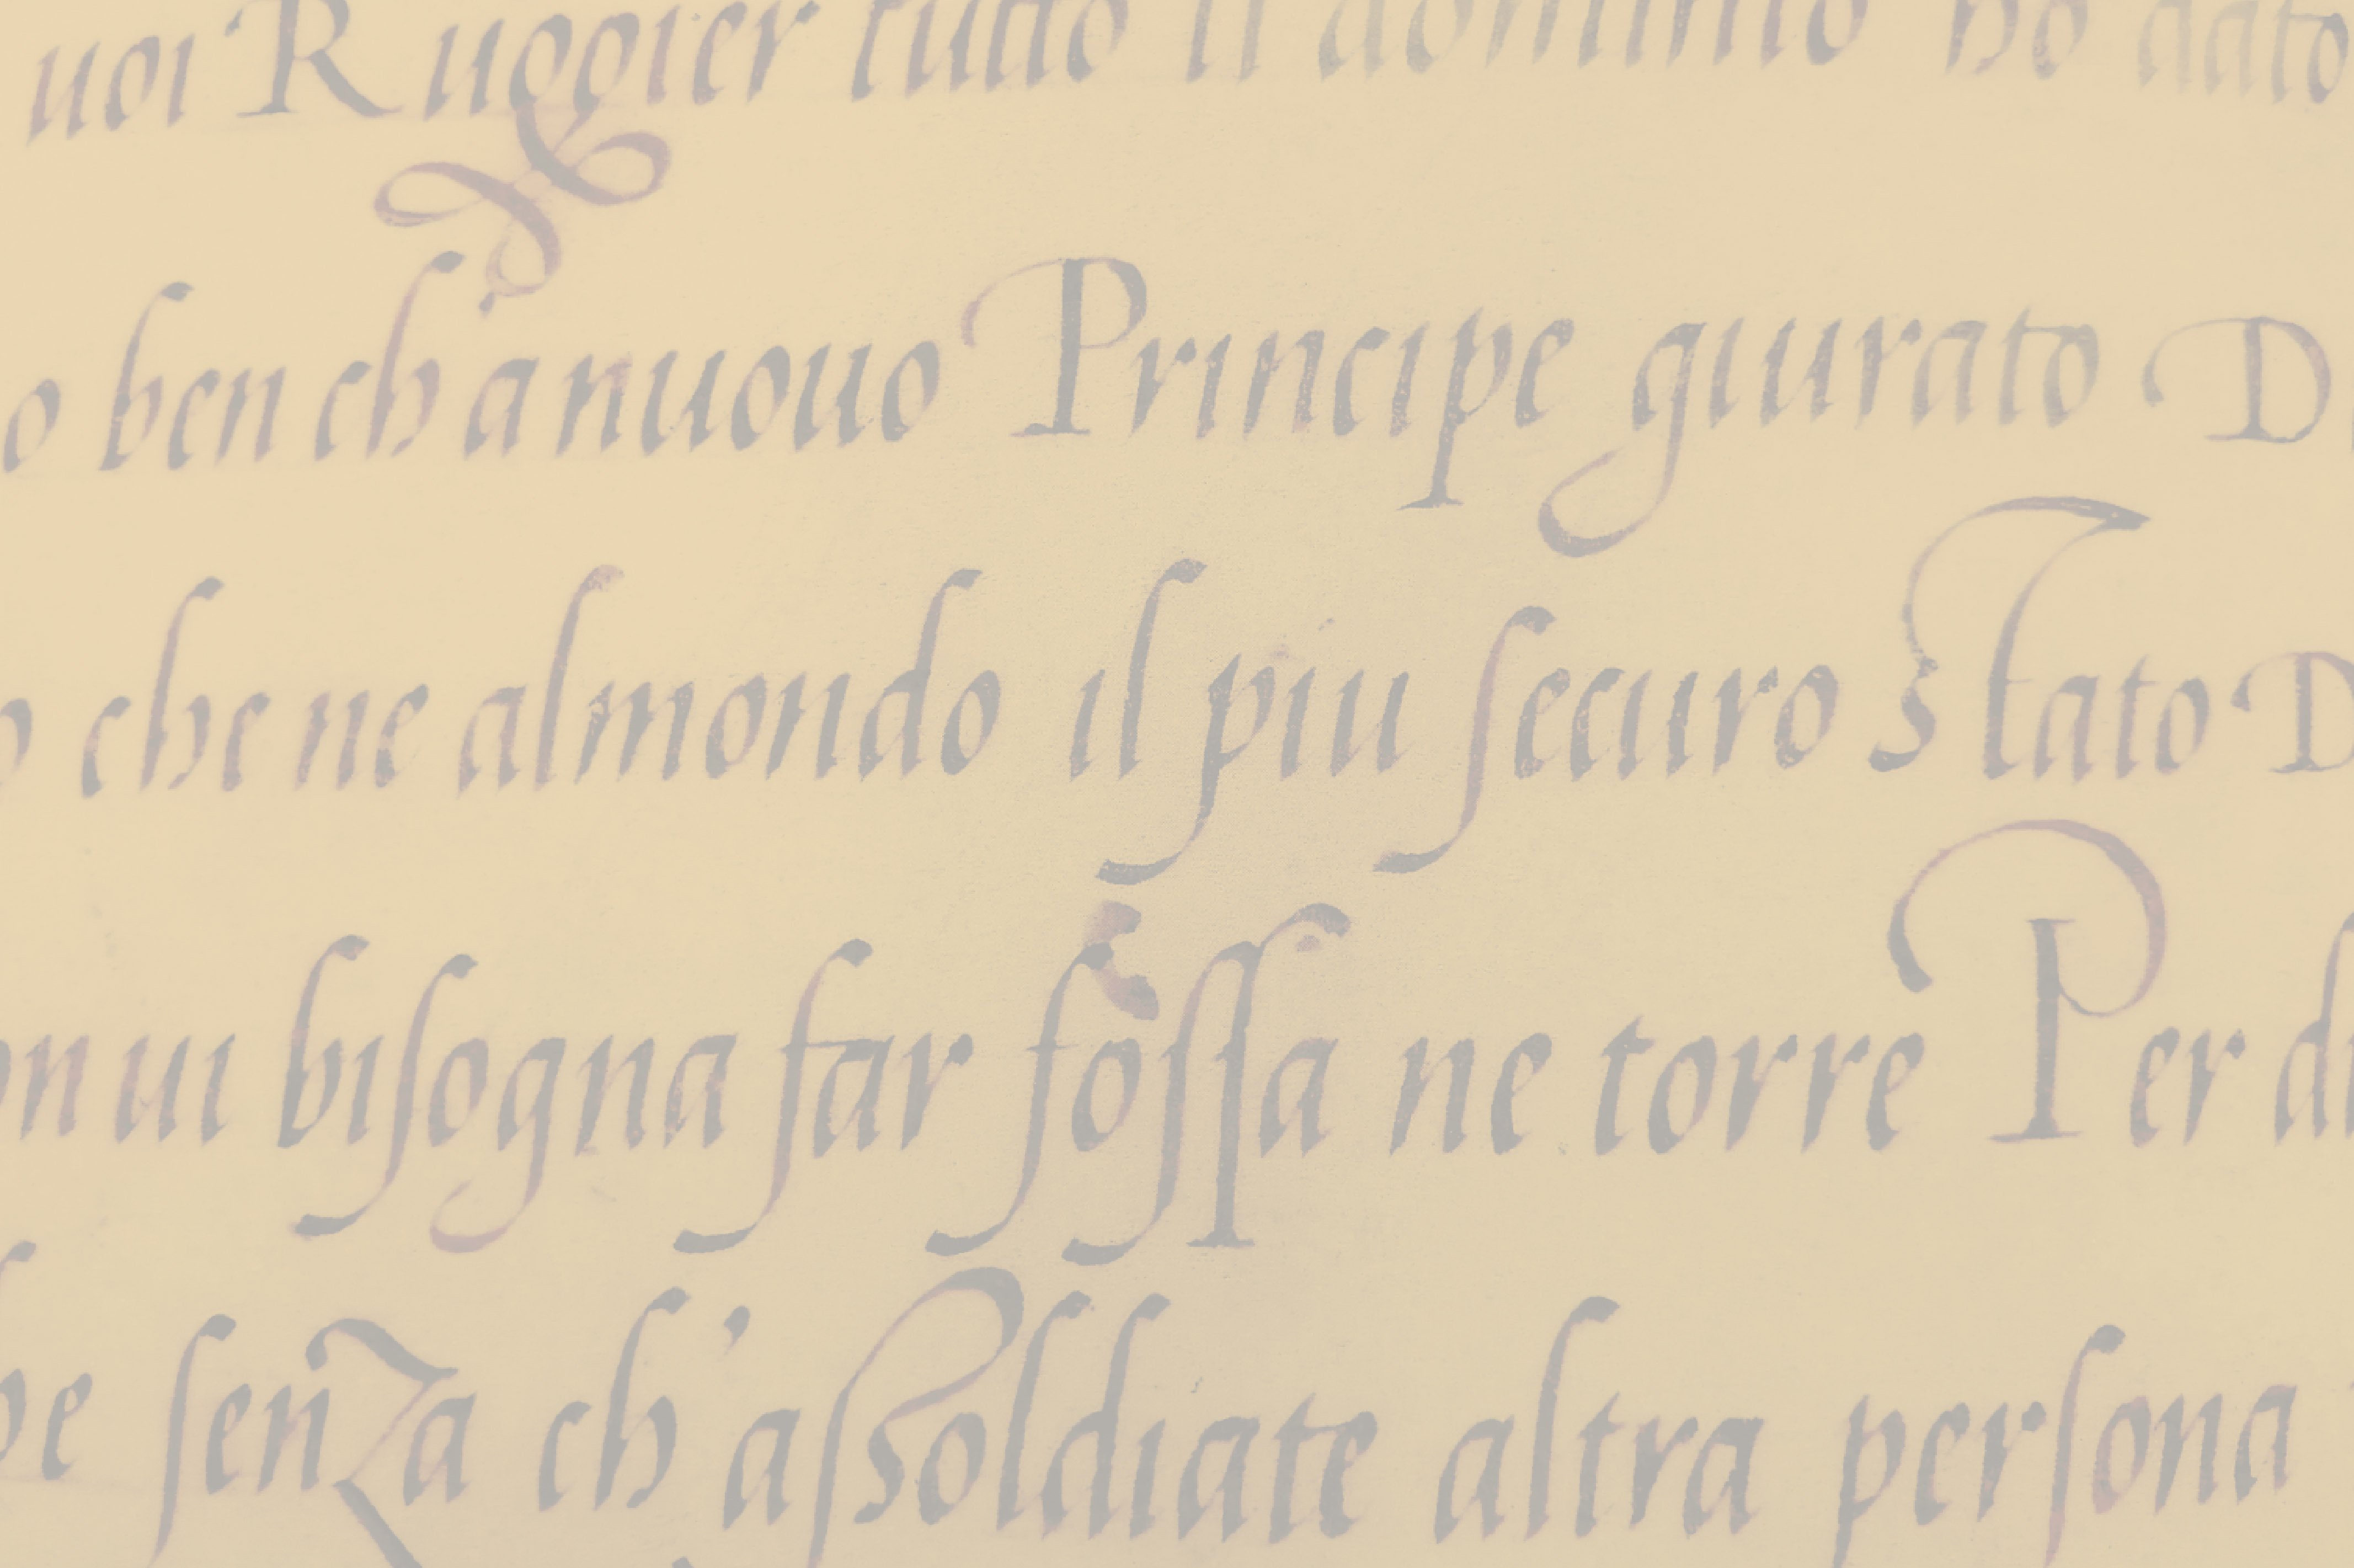 uoi Ruggier tutto il dominio ho dato
o ben ch'a nuouo Principe giurato D
che ne al mondo il piu ſecuro Stato D
on ui biſogna far foſſa ne torre Per di
pe ſenza ch'aſſoldiate altra perſona